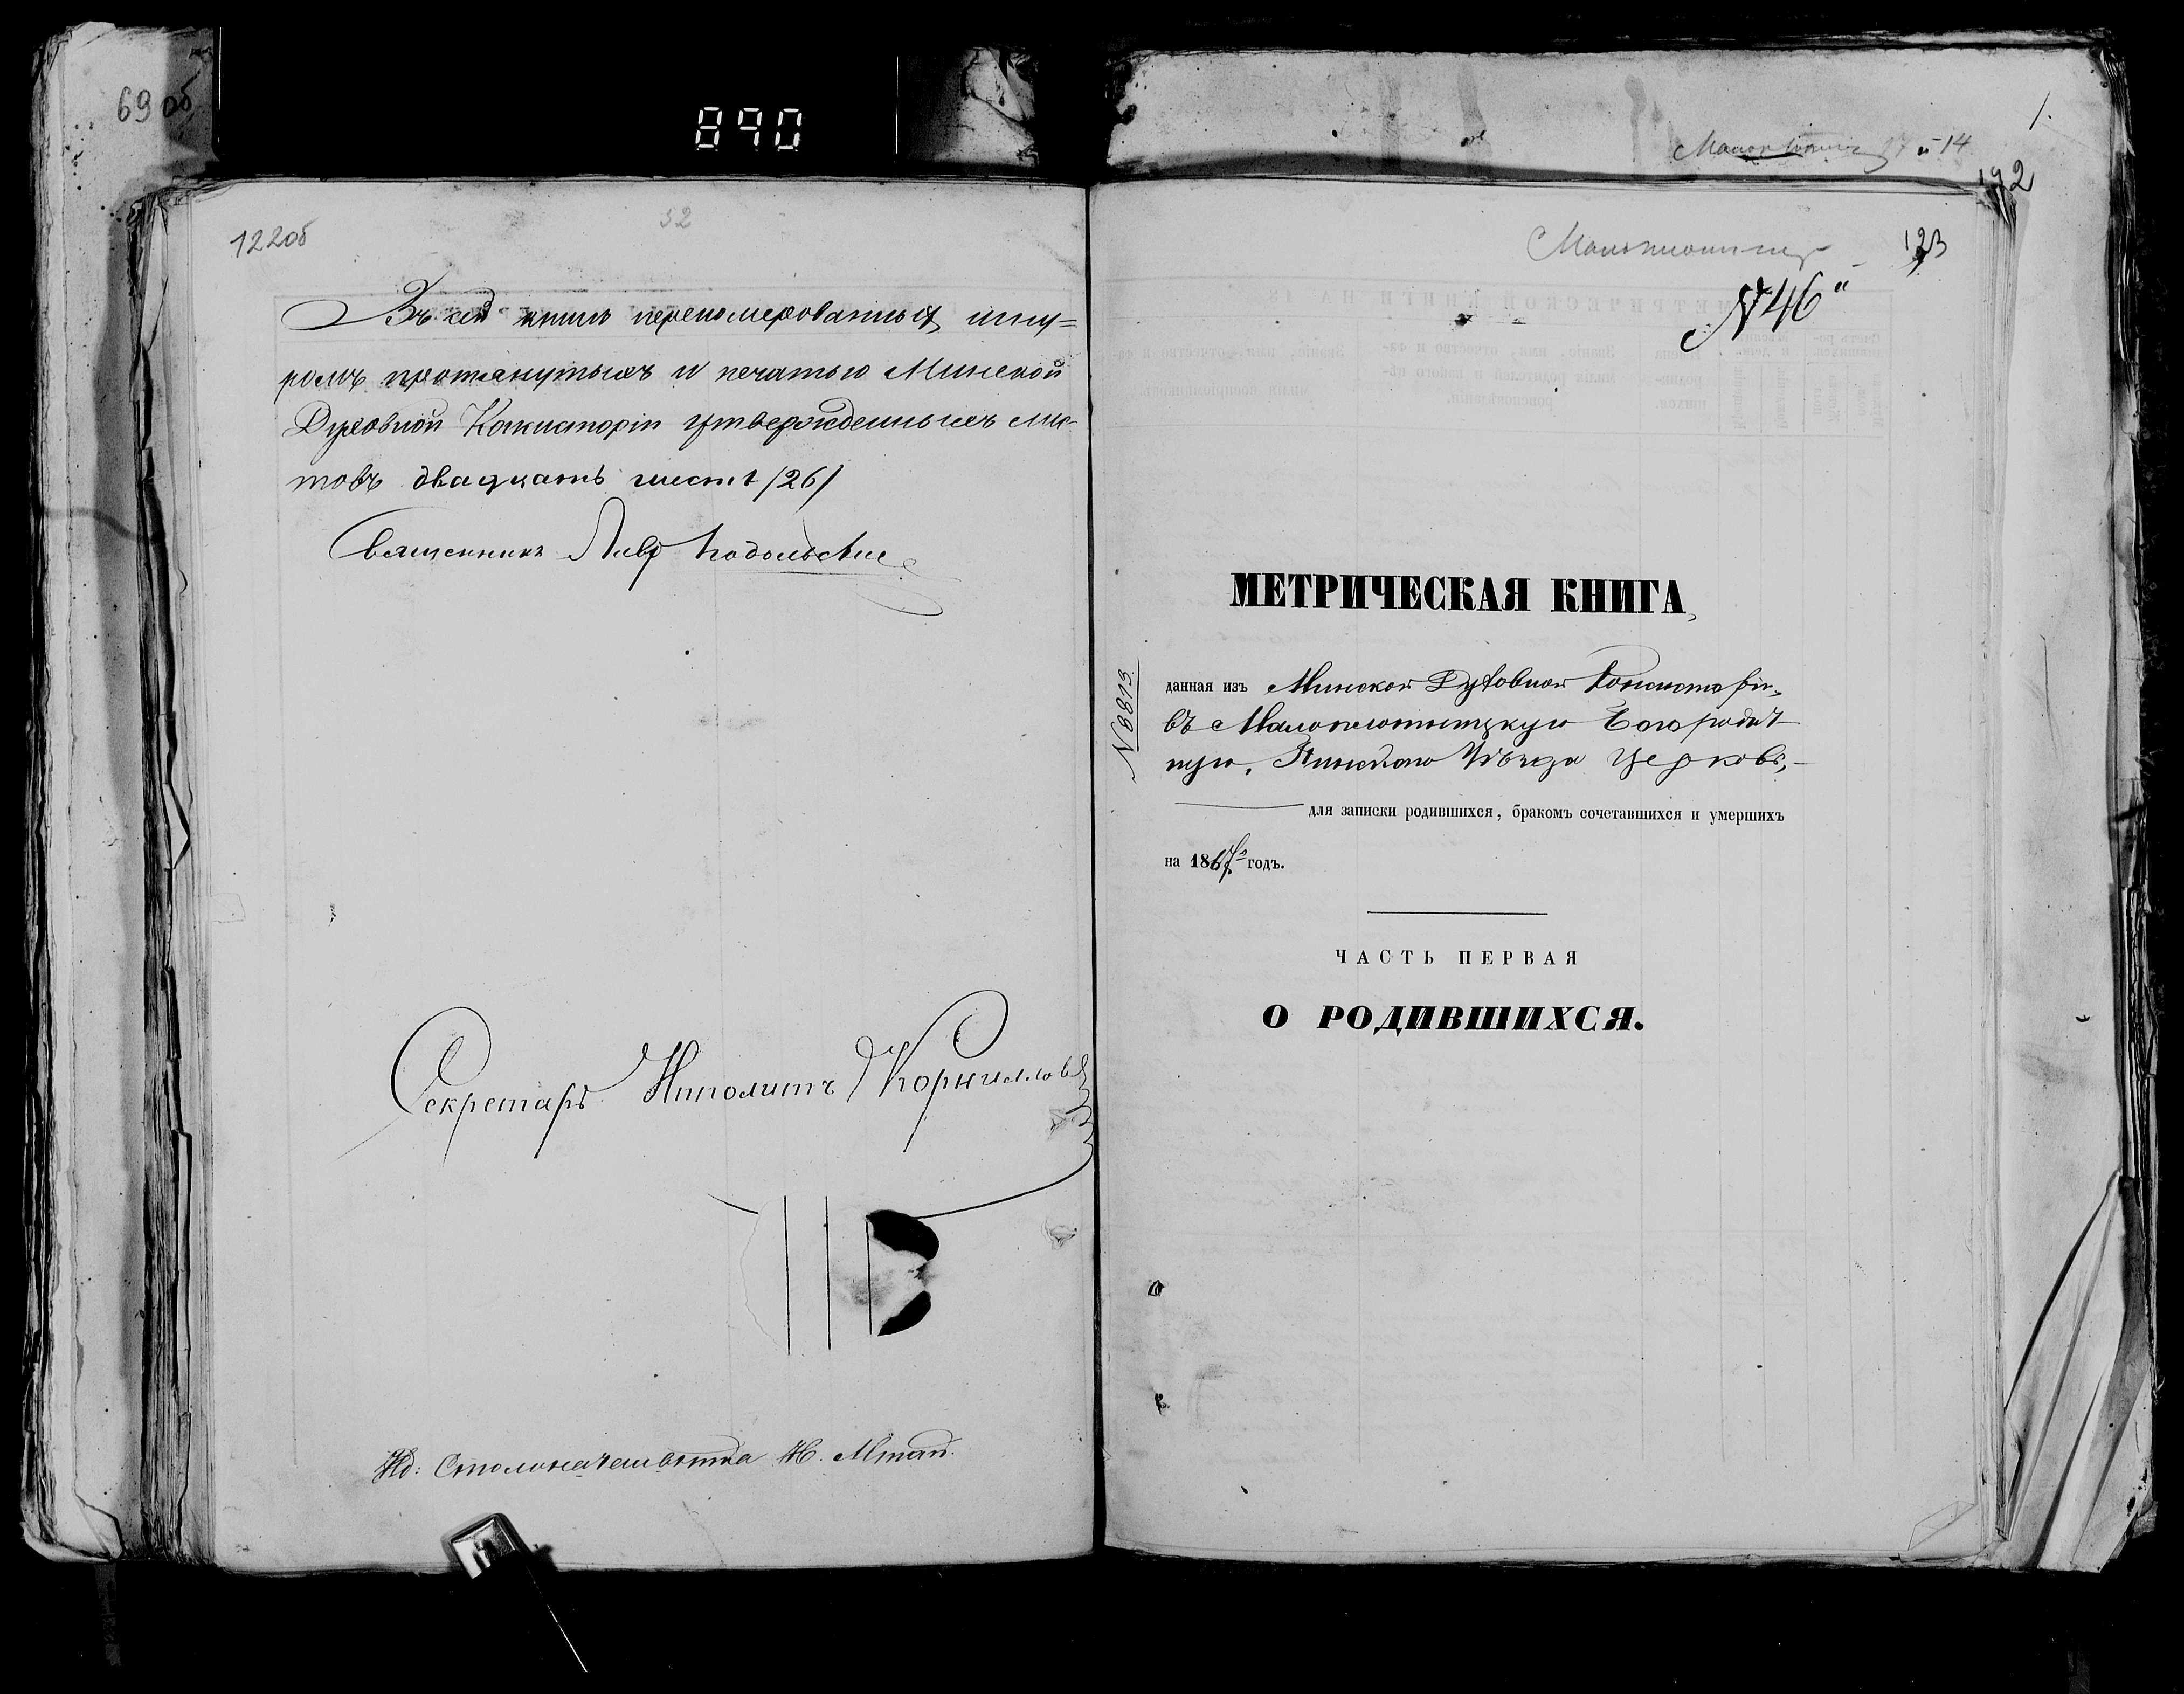 69 об
890
122 об
52
Въ сей книгѣ перенумерованныхъ шну=
ромъ протянутыхъ и печатью Минской
Духовной Консисторіи утвержденныхъ лис-
товъ двадцать шесть /26/
Священникъ Подольскій
Секретарь Ипполитъ Корниловъ
Ид: Столоначальника
1.
и 14
192
123
N 46"
МЕТРИЧЕСКАЯ КНИГА,
N 8813
данная изъ Минской Духовной Консисторіи,
въ Малоплотницкую Богородич-
ную, Пинскаго Уѣзда церковь,-
для записки родившихся, бракомъ сочетавшихся и умершихъ
на 1867 годъ.
ЧАСТЬ ПЕРВАЯ
О РОДИВШИХСЯ.